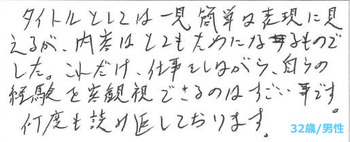 タイトルとしては一見簡単な表現に見
えるが、内容はとてもためになるもので
した。これだけ、仕事をしながら、自らの
経験を客観視できるのはすごい事です。
何度も読み返しております。
32歳/男性